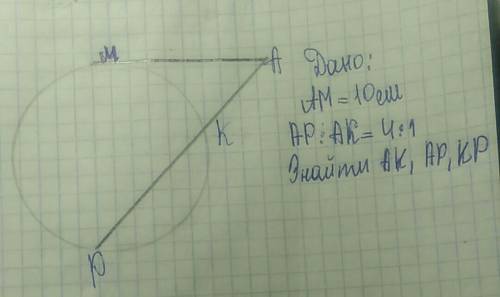 M
A
Дано:
AM = 10 см
AP : AK = 4 : 1
K
Знайти AK, AP, KP
P